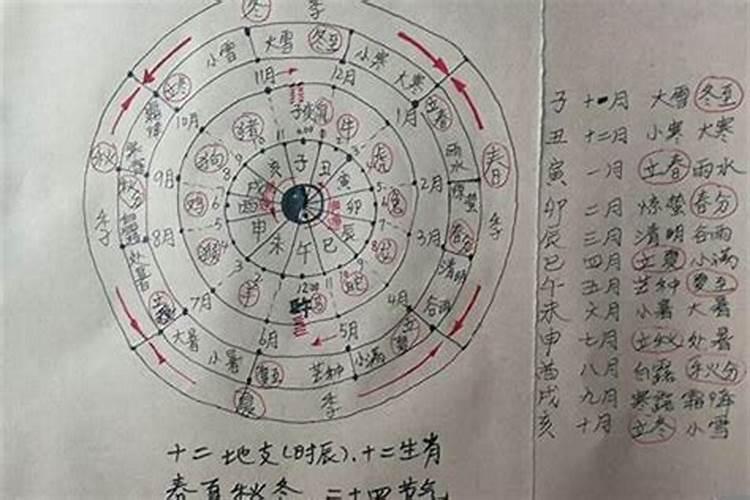 冬 季
小雪 大雪 冬至 小寒 大寒
立冬 立春
11月 12月
10月 1月
子 鼠 牛
猪 虎
狗 亥 子 丑 寅
秋 9月 戌 2月 雨水 春
秋分 鸡 酉 卯 兔 惊蛰
季 8月 猴 申 辰 3月 春分 季
处暑 未 午 巳 清明
立秋 7月 羊 12:00 蛇 4月 谷雨
午 马
大暑 6月 5月 立夏
小暑 夏至 芒种 小满
夏 季
子 十一月 大雪 冬至
丑 十二月 小寒 大寒
寅 一月 立春 雨水
卯 二月 惊蛰 春分
辰 三月 清明 谷雨
巳 四月 立夏 小满
午 五月 芒种 夏至
未 六月 小暑 大暑
申 七月 立秋 处暑
酉 八月 白露 秋分
戌 九月 寒露 霜降
亥 十月 立冬 小雪
十二地支(时辰)、十二生肖
春夏秋冬 二十四节气